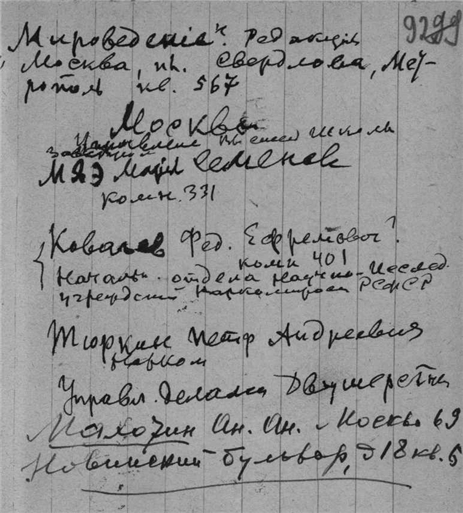 92
Мироведенiе" Редакция
Москва, пл. Свердлова, Мет-
рополь кв. 567
Москва
Управление Высшей школы
Семенов
комн. 331
Ковалев Фед. Ефремович?
комн 401
Начальн. отдела Научно-Исслед.
учреждений Наркомпроса РСФСР
Тюркин Петр Андреевич
Нарком
Управл. делами
Малочин Ан. Ан. Москва 69
Новинский бульвар, д 18 кв. 5